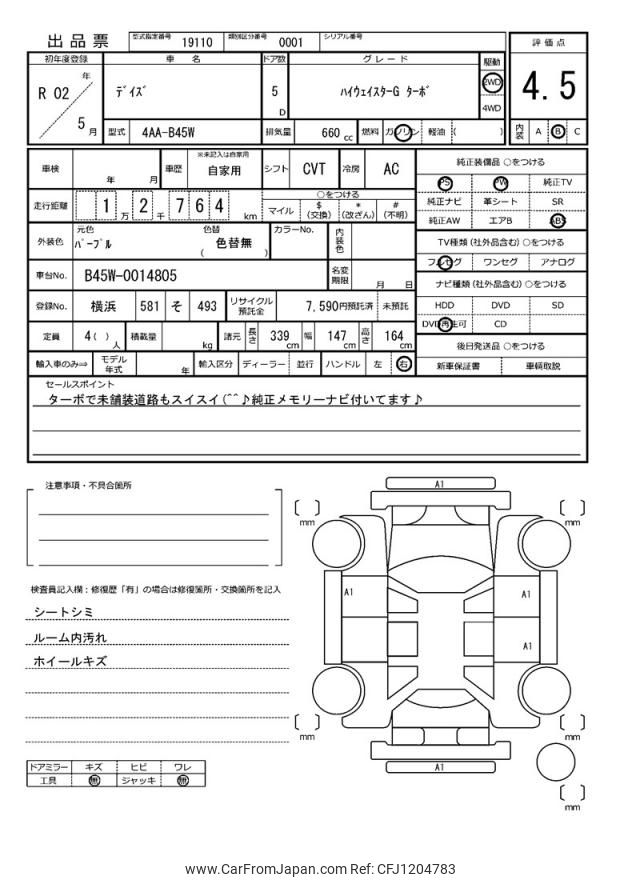 出品票 型式指定番号 19110 類別区分番号 0001 シリアル番号
初年度登録 車名 ドア数 グレード 駆動 評価点
R 02 年 5 月 デイズ 5 D ハイウェイスターG ターボ 2WD 4WD 4.5
型式 4AA-B45W 排気量 660 cc 燃料 ガソリン 軽油 ( ) 内装 A B C
車検 年 月 車歴 ※未記入は自家用 自家用 シフト CVT 冷房 AC 純正装備品 ○をつける
PS PW 純正TV
走行距離 1 万 2 千 7 6 4 km ○をつける マイル $ (交換) * (改ざん) # (不明) 純正ナビ 革シート SR
純正AW エアB ABS
外装色 元色 パープル 色替 ( 色替無 ) カラーNo. 内装色 TV種類 (社外品含む) ○をつける
フルセグ ワンセグ アナログ
車台No. B45W-0014805 名変期限 月 日 ナビ種類 (社外品含む) ○をつける
登録No. 横浜 581 そ 493 リサイクル預託金 7,590円預託済 未預託 HDD DVD SD
定員 4 ( ) 人 積載量 kg 諸元 長さ 339 cm 幅 147 cm 高さ 164 cm DVD再生可 CD
後日発送品 ○をつける
輸入車のみ⇒ モデル年式 年 輸入区分 ディーラー 並行 ハンドル 左 右 新車保証書 車輌取説
セールスポイント
ターボで未舗装道路もスイスイ(^^♪純正メモリーナビ付いてます♪
注意事項・不具合箇所
検査員記入欄:修復歴「有」の場合は修復箇所・交換箇所を記入
シートシミ
ルーム内汚れ
ホイールキズ
ドアミラー キズ ヒビ ワレ
工具 無 ジャッキ 無
A1
[ ] mm [ ] mm
A1 A1
A1
[ ] mm [ ] mm
A1
[ ] mm
www.CarFromJapan.com Ref: CFJ1204783